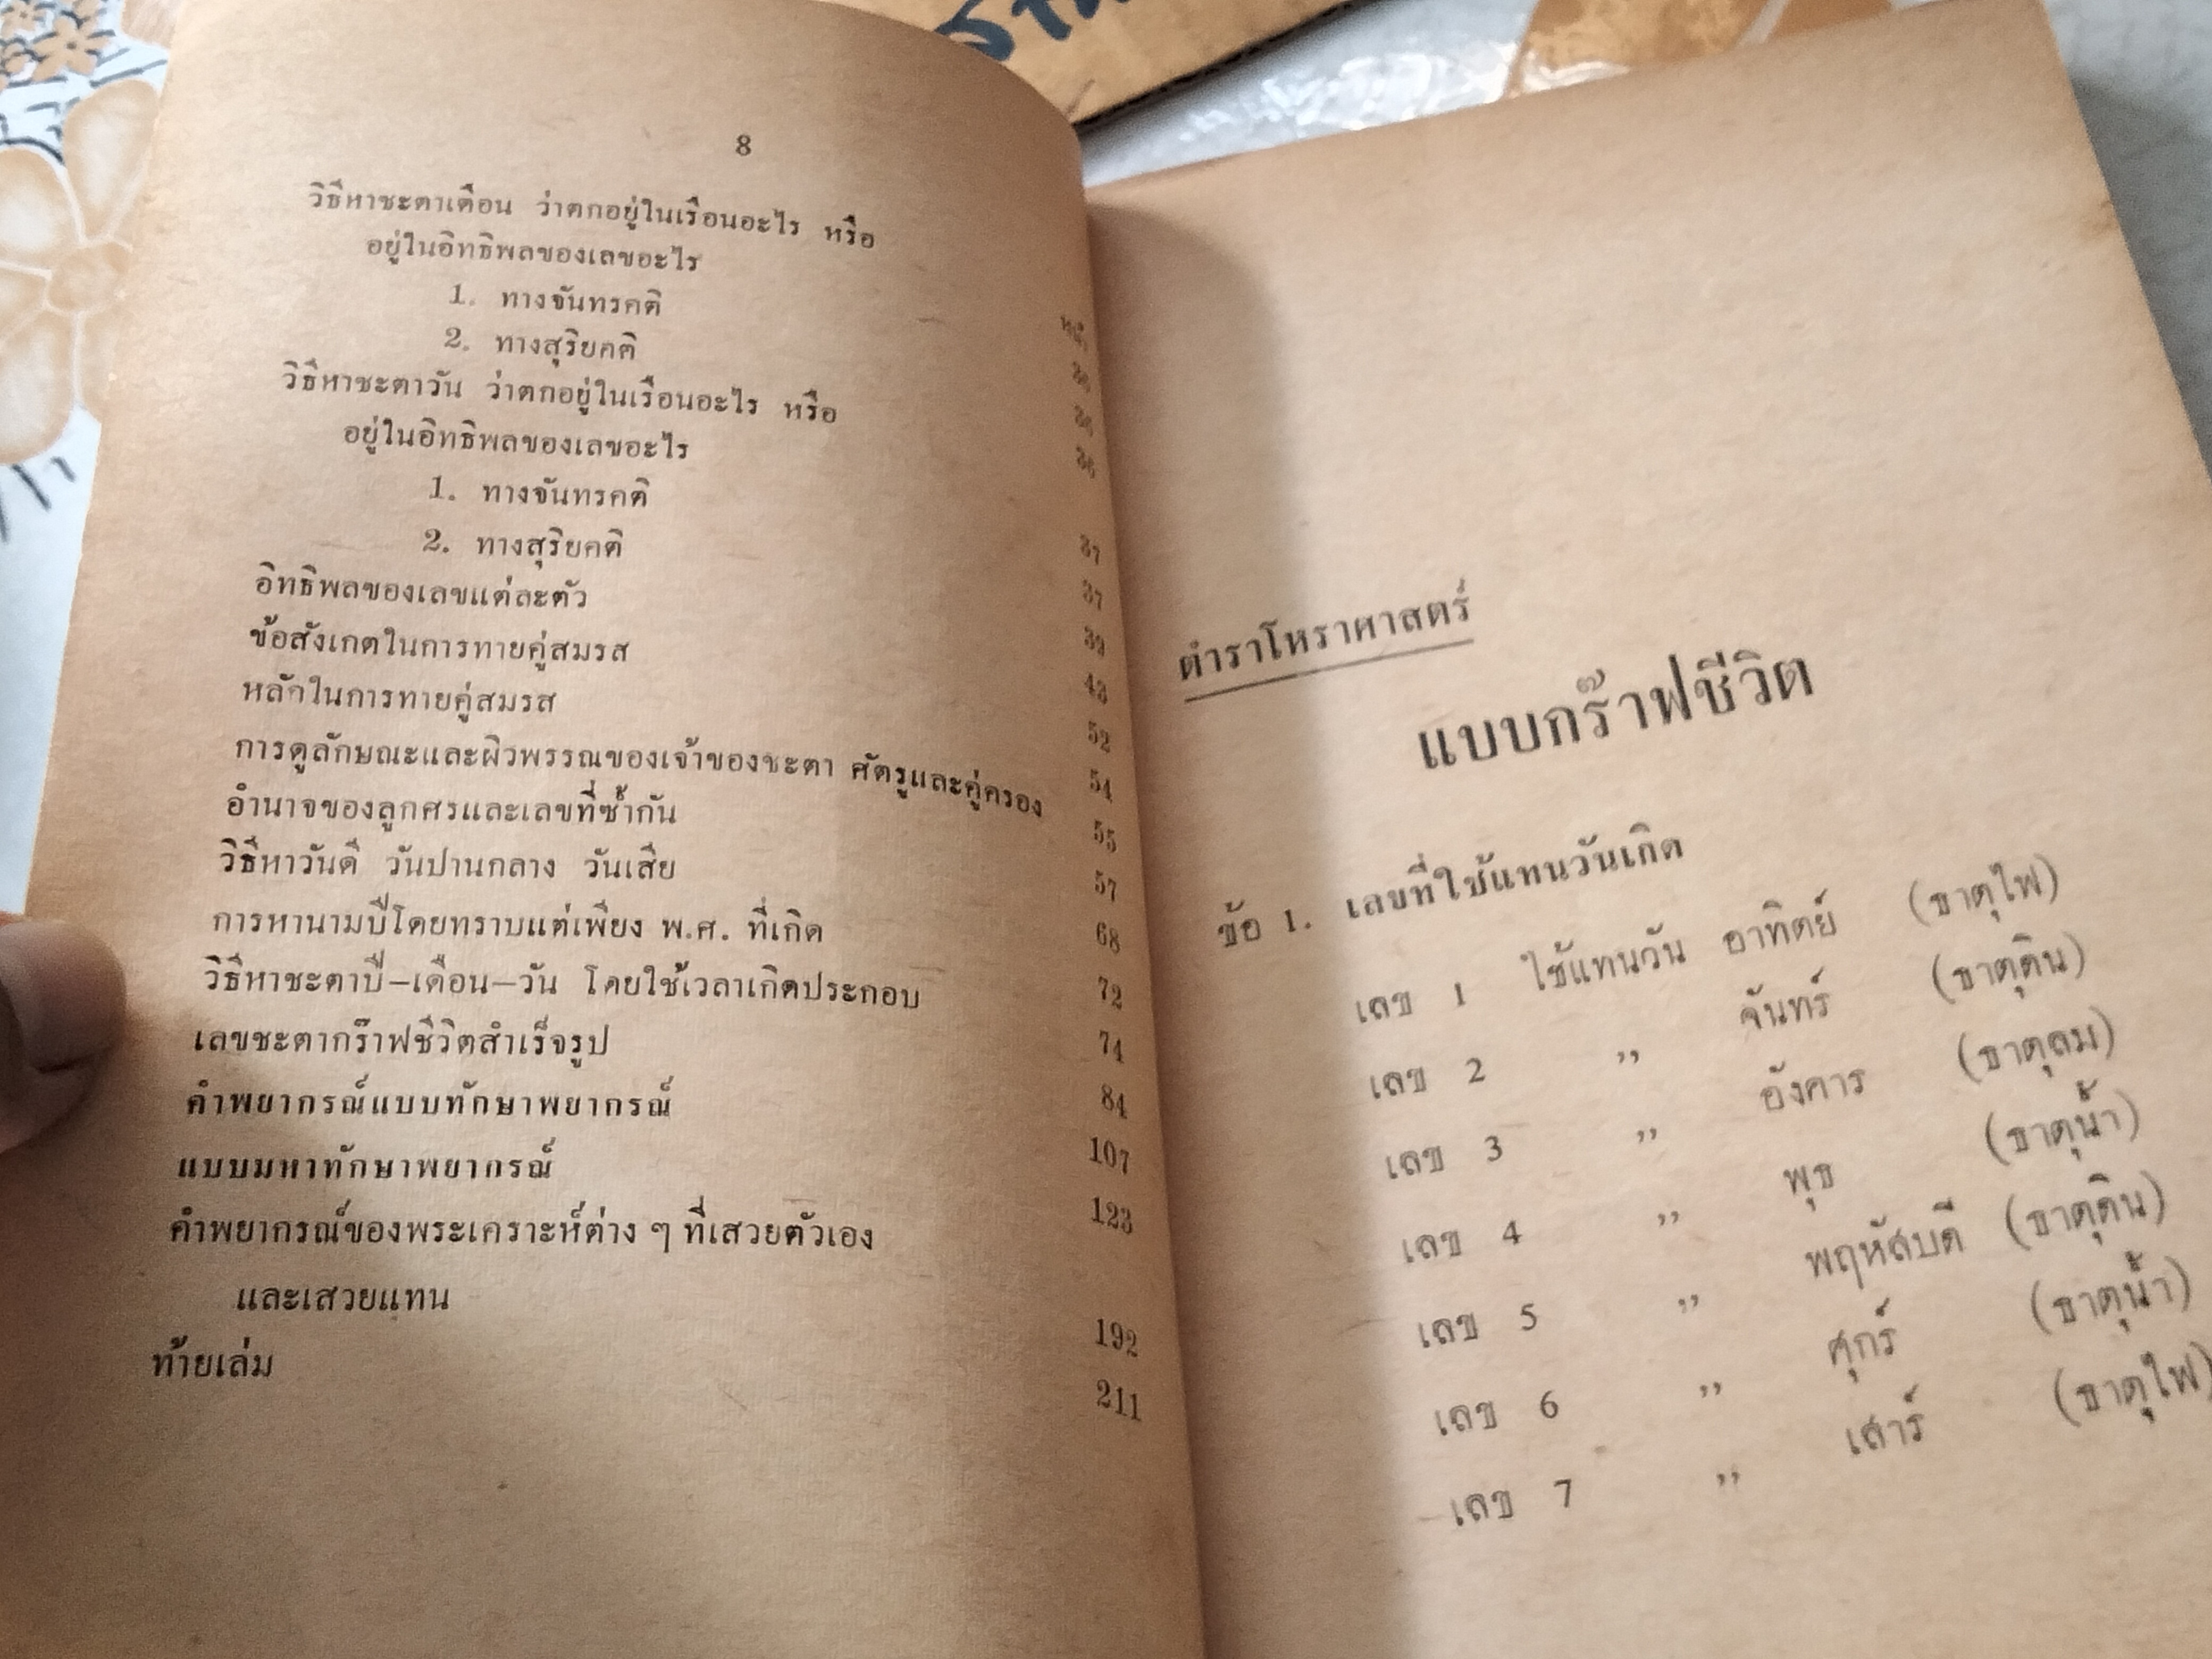 8
หน้า
วิธีหาชะตาเดือน ว่าตกอยู่ในเรือนอะไร หรือ
อยู่ในอิทธิพลของเลขอะไร 36
1. ทางจันทรคติ 36
2. ทางสุริยคติ 36
วิธีหาชะตาวัน ว่าตกอยู่ในเรือนอะไร หรือ
อยู่ในอิทธิพลของเลขอะไร
1. ทางจันทรคติ 37
2. ทางสุริยคติ 37
อิทธิพลของเลขแต่ละตัว 39
ข้อสังเกตในการทายคู่สมรส 43
หลักในการทายคู่สมรส 52
การดูลักษณะและผิวพรรณของเจ้าของชะตา ศัตรูและคู่ครอง 54
อำนาจของลูกศรและเลขที่ซ้ำกัน 55
วิธีหาวันดี วันปานกลาง วันเสีย 57
การหานามปีโดยทราบแต่เพียง พ.ศ. ที่เกิด 68
วิธีหาชะตาปี–เดือน–วัน โดยใช้เวลาเกิดประกอบ 72
เลขชะตากร๊าฟชีวิตสำเร็จรูป 74
คำพยากรณ์แบบทักษาพยากรณ์ 84
แบบมหาทักษาพยากรณ์ 107
คำพยากรณ์ของพระเคราะห์ต่าง ๆ ที่เสวยตัวเอง 123
และเสวยแทน 192
ท้ายเล่ม 211
ตำราโหราศาสตร์
แบบกร๊าฟชีวิต
ข้อ 1. เลขที่ใช้แทนวันเกิด
เลข 1 ใช้แทนวัน อาทิตย์ (ธาตุไฟ)
เลข 2 ,, จันทร์ (ธาตุดิน)
เลข 3 ,, อังคาร (ธาตุลม)
เลข 4 ,, พุธ (ธาตุน้ำ)
เลข 5 ,, พฤหัสบดี (ธาตุดิน)
เลข 6 ,, ศุกร์ (ธาตุน้ำ)
เลข 7 ,, เสาร์ (ธาตุไฟ)